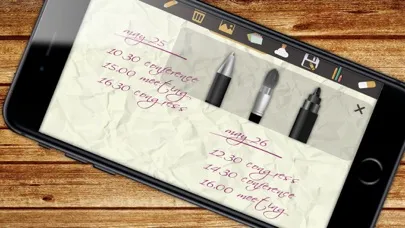 may 25
10.30 conference
15.00 meeting.
16.30 congress
may 26
12.30 congress
14.30 conference
16.00 meeting.